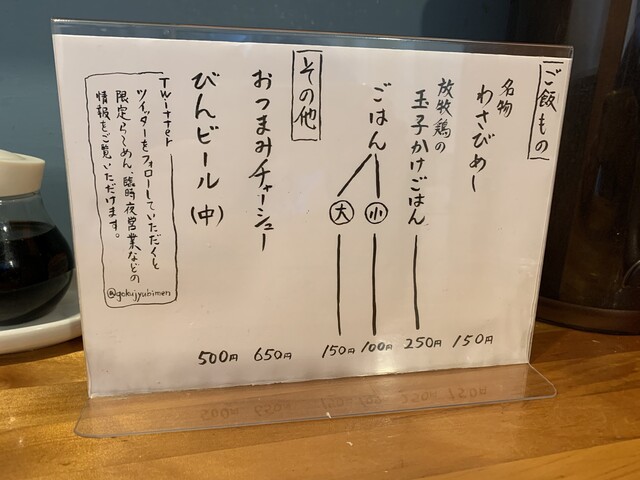 ご飯もの
名物
わさびめし
150円
放牧鶏の
玉子かけごはん
250円
ごはん
小
100円
大
150円
その他
おつまみチャーシュー
650円
びんビール(中)
500円
Twitter
ツイッターをフォローしていただくと
限定らーめん、臨時夜営業などの
情報をご覧いただけます。
@gokujyubimen